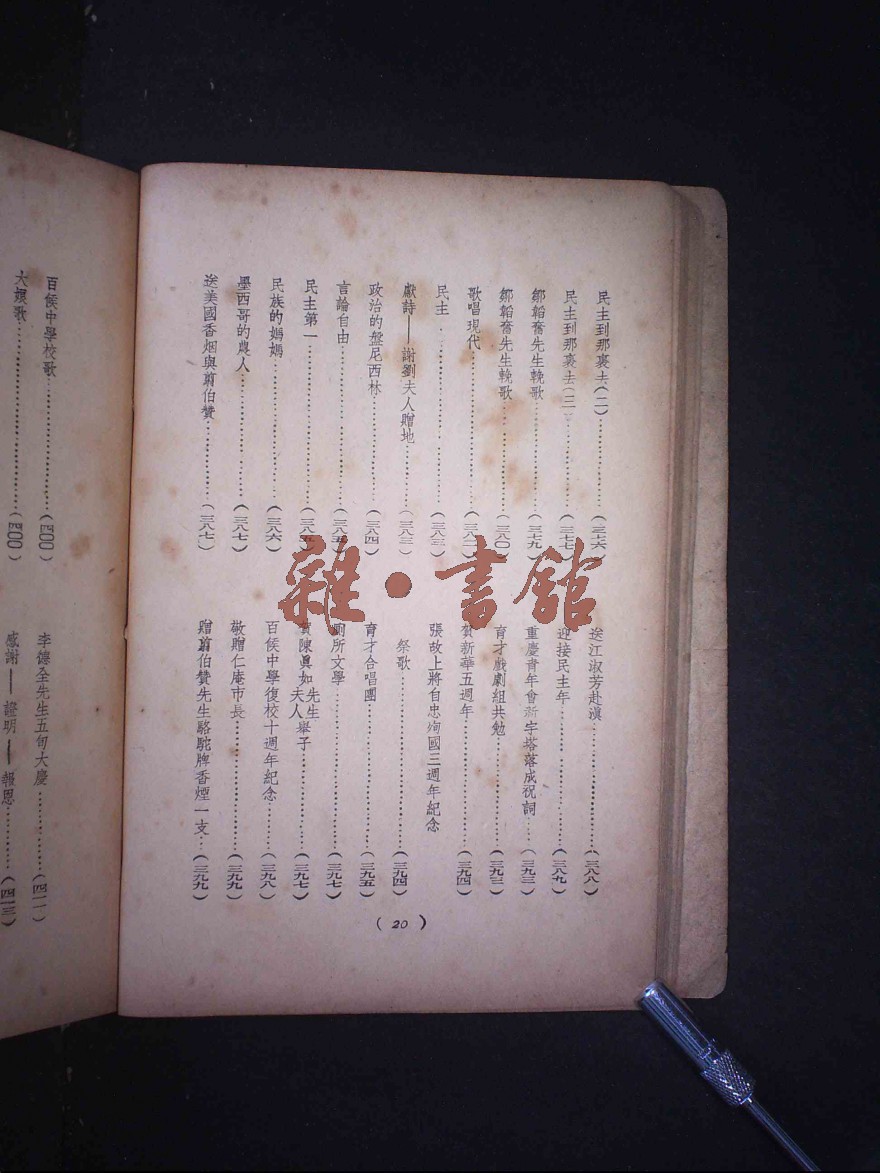 民主到那裏去(二)……………(三七六)
民主到那裏去(三)……………(三七七)
鄒韜奮先生輓歌……………(三七九)
鄒韜奮先生輓歌……………(三八〇)
歌唱現代……………
民主……………(三八三)
獻詩——謝劉夫人贈地……………(三八三)
政治的盤尼西林……………(三八四)
言論自由……………(三八五)
民主第一……………
民族的媽媽……………(三八六)
墨西哥的農人……………(三八七)
送美國香烟與翦伯贊……………(三八七)
送江淑芳赴滇……………(三八八)
迎接民主年……………(三八九)
重慶青年會新宇塔落成祝詞……(三九二)
育才戲劇組共勉……………(三九三)
賀新華五週年……………(三九四)
張故上將自忠殉國三週年紀念
祭歌……………(三九四)
育才合唱團……………(三九五)
廁所文學……………(三九七)
賀陳眞如先生夫人舉子……………(三九七)
百侯中學復校十週年紀念……………(三九八)
敬贈仁庵市長……………(三九九)
贈翦伯贊先生駱駝牌香煙一支…(三九九)
(20)
百侯中學校歌……………(四〇〇)
大塲歌……………(四〇〇)
李德全先生五旬大慶……………(四一一)
感謝——證明——報恩……………(四一三)
雜·書館